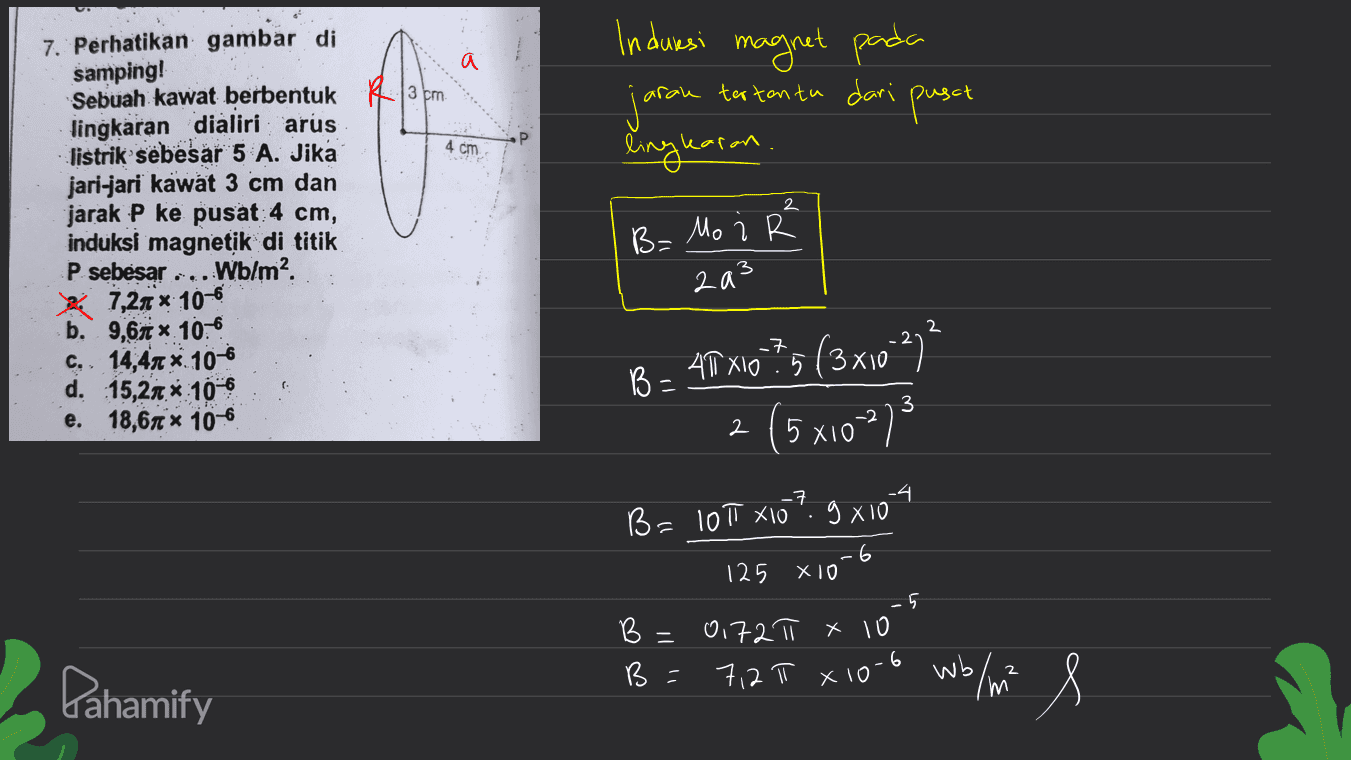 7. Perhatikan gambar di
samping!
Sebuah kawat berbentuk
lingkaran dialiri arus
listrik sebesar 5 A. Jika
jari-jari kawat 3 cm dan
jarak P ke pusat 4 cm,
induksi magnetik di titik
P sebesar ... Wb/m².
a. 7,2π × 10⁻⁶
b. 9,6π × 10⁻⁶
c. 14,4π × 10⁻⁶
d. 15,2π × 10⁻⁶
e. 18,6π × 10⁻⁶
R
a
3 cm
4 cm
P
Induksi magnet pada
jarak tertentu dari pusat
lingkaran.
B = μ₀ i R² / 2a³
B = 4π x10⁻⁷. 5 (3x10⁻²)² / 2 (5 x10⁻²)³
B = 10π x10⁻⁷. 9 x10⁻⁴ / 125 x10⁻⁶
B = 0,72π x 10⁻⁵
B = 7,2π x10⁻⁶ wb/m²
Pahamify